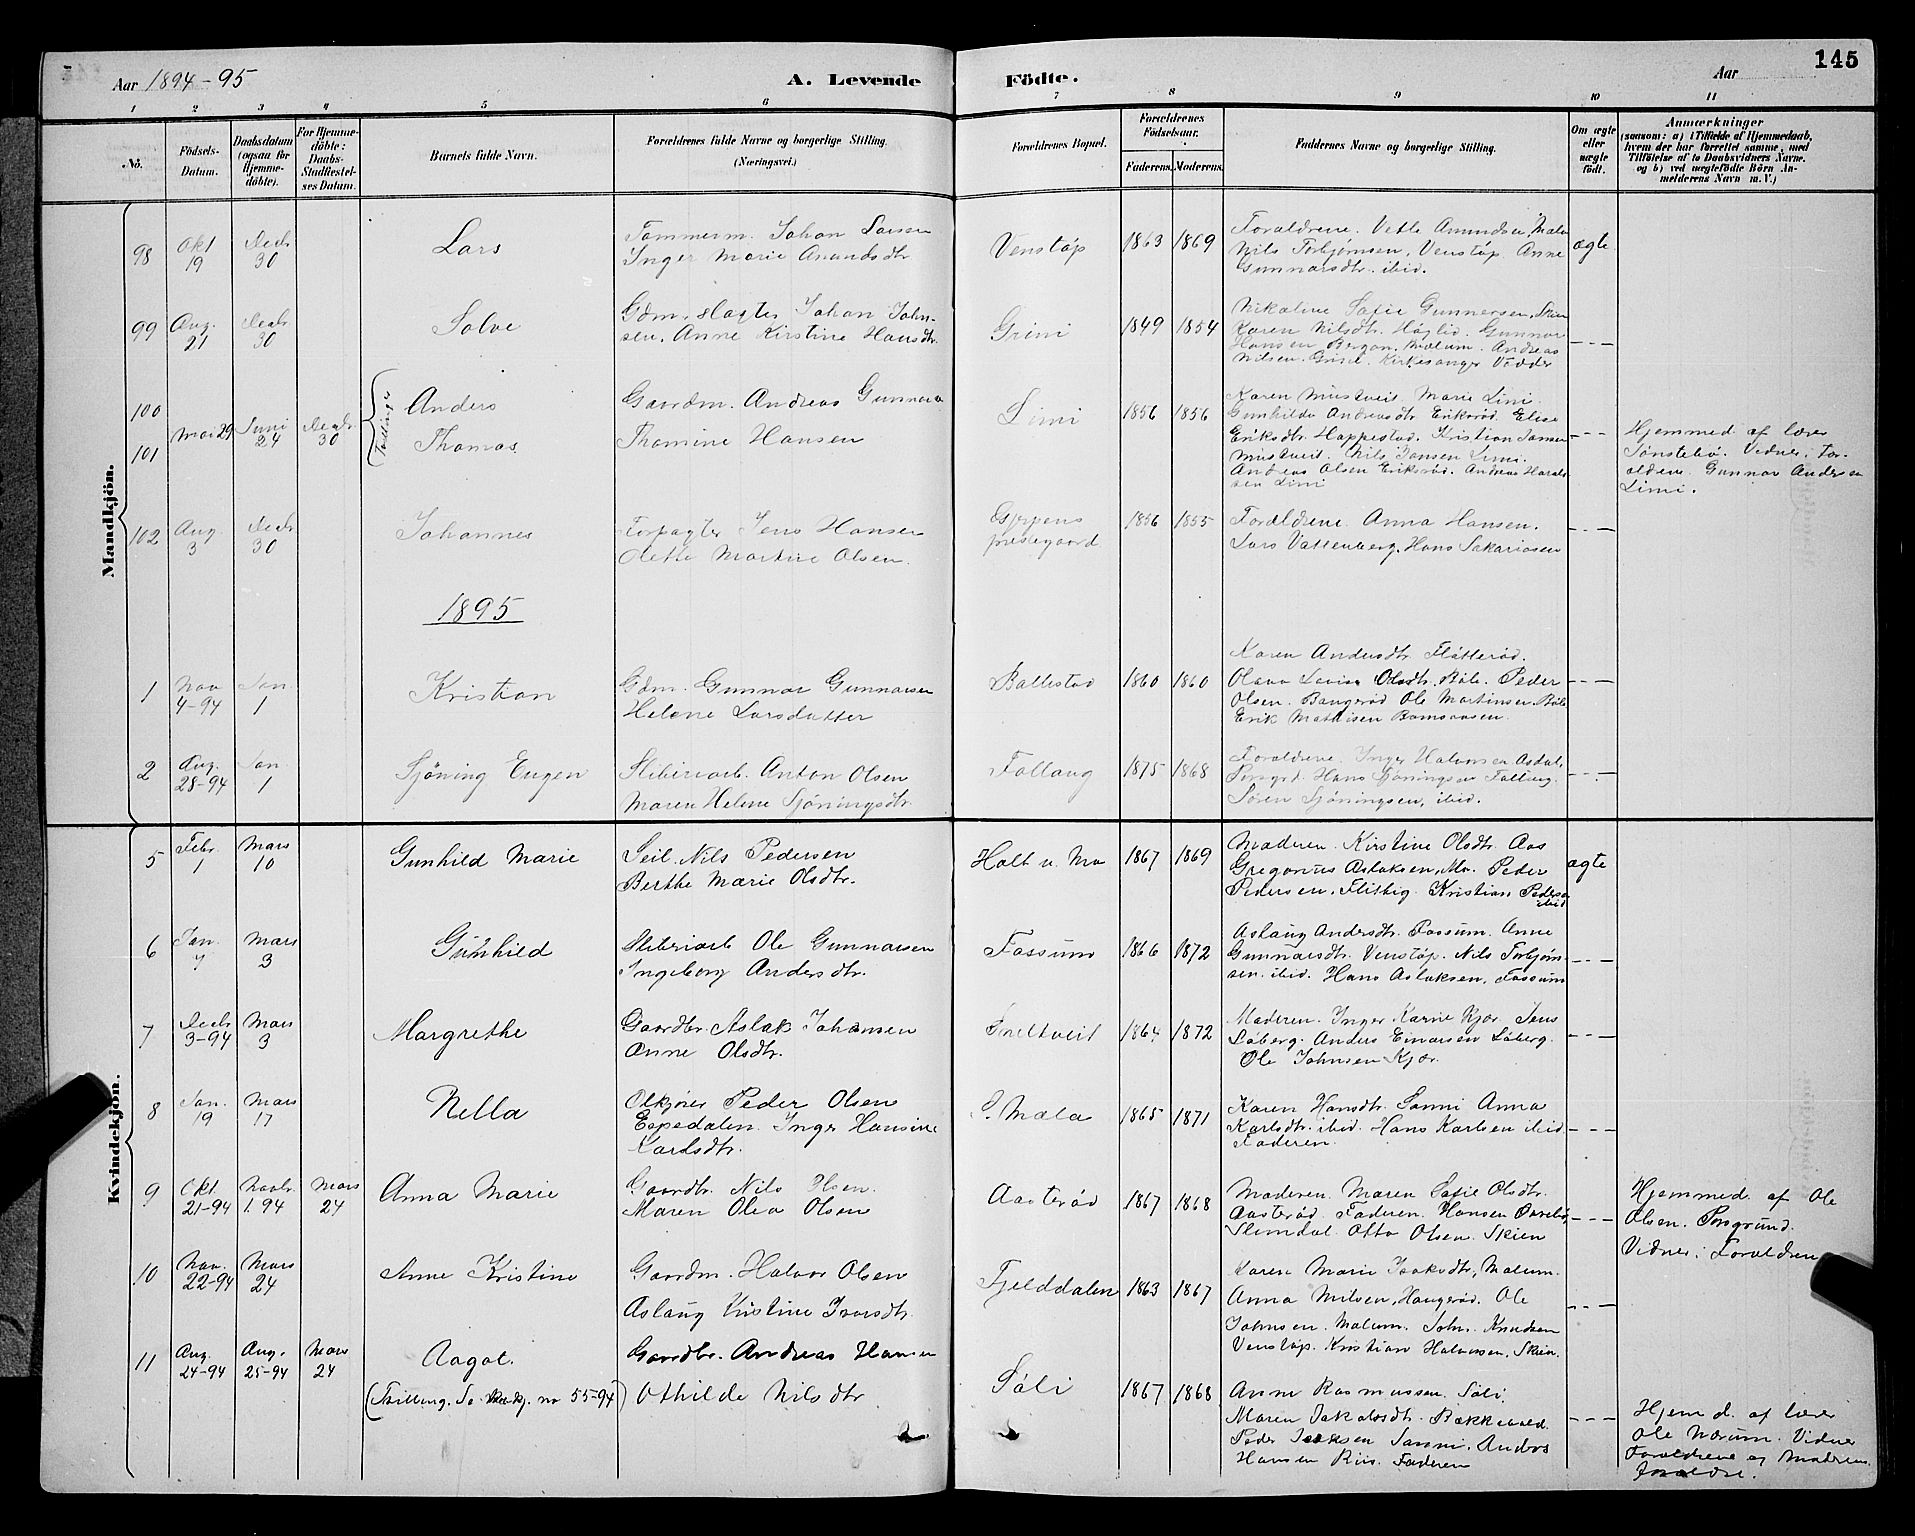 Aar 1894-95
A. Levende Födte.
Aar
145
1 2 3 4 5 6 7 8 9 10 11
No.
Födsels-Datum.
Daabsdatum (ogsaa for Hjemme-döbte).
For Hjemme-döbte: Daabs-Stadfæstel-ses Datum.
Barnets fulde Navn.
Forældrenes fulde Navne og borgerlige Stilling. (Næringsvei.)
Forældrenes Bopæl.
Forældrenes Födselsaar.
Faderens. Moderens.
Faddernes Navne og borgerlige Stilling.
Om ægte eller uægte födt.
Anmærkninger
(saasom: a) i Tilfælde af Hjemmedaab, hvem der har forrettet samme, med Tilföielse af to Daabsvidners Navne. og b) ved uægtefödte Börn An-melderens Navn m. V.)
Mandkjön.
98 Okt 19 Decbr 30 Lars
Tømmerm. Johan Larsen
Inger Marie Amundsdtr
Venstøp 1863 1869
Forældrene. Vetle Amundsen, Mæla
Nils Torbjørnsen, Venstøp. Anne
Gunnarsdtr. ibid.
ægte
99 Aug. 21 Decbr 30 Solve
Gdm. slagter Johan John-
sen. Anne Kirstine Hansdtr.
Grini 1849 1854
Nikoline Sofie Gunnersen, Skien
Karen Nilsdtr. Høglid. Gunnar
Hansen Bergan, Mælum. Andreas
Nilsen. Grini. Kirkesanger Vadder
100
101
Mai 29 Juni 24 Decbr 30
Tvillinger
Anders
Thomas.
Gaardm. Andreas Gunnars
Thomine Hansen
Limi 1856 1856
Karen Mustveit. Marie Limi.
Gunhilde Andreasdtr. Eriksrød. Elise
Eriksdtr. Happestad. Kristian Jansen
Mustveit. Nils Jansen Limi.
Andreas Olsen Eriksrød. Andreas Harald-
sen Limi
Hjemmed. af lærer
Tønstebø. Vidner: For-
ældrene. Gunnar Andersen
Limi.
102 Aug. 3 Decbr 30 Johannes
Forpagter Jens Hansen
Olette Martine Olsen.
Gjerpens
prestegaard
1856 1855
Forældrene. Anna Hansen.
Lars Vattenberg. Hans Sakariasen
1895
1 Nov 4-94 Jan. 1 Kristian
Gdm. Gunnar Gunnarsen
Helene Larsdatter
Ballestad 1860 1860
Karen Andersdtr. Flåtterød.
Olava Lovise Olsdtr. Bøle. Peder
Olsen. Bangerød Ole Martinsen. Bøle
Erik Mathisen Romsaasen.
2 Aug. 28-94 Jan. 1 Sjøning Eugen
Sliberiarb. Anton Olsen
Maren Helene Sjøningsdtr.
Follaug 1875 1868
Forældrene. Inger Halvorsen Asdal,
Hans Sjøningsen Follaug.
Søren Sjøningsen, ibid.
Kvindekjön.
5 Febr. 1 Mars 10 Gunhild Marie
Seil. Nils Pedersen
Berthe Marie Olsdtr.
Holt u. Mo 1867 1869
Moderen. Kirstine Olsdtr. Aas
Gregorius Aslaksen, Mo. Peder
Pedersen, Flittig. Kristian Pedersen
ibid
ægte
6 Jan. 7 Mars 3 Gunhild
Sliberiarb Ole Gunnarsen
Ingeborg Andersdtr.
Fossum 1866 1872
Aslaug Andersdtr. Fossum. Anne
Gunnarsdtr. Venstøp. Nils Torbjørn-
sen. ibid. Hans Aslaksen, Fossum
7 Decbr 3-94 Mars 3 Margrethe
Gaardbr. Aslak Johansen
Anne Olsdtr.
Sneltveit 1864 1872
Moderen. Inger Karine Kjær. Jens
Løberg. Anders Einarsen Løberg.
Ole Johnsen Kjær.
8 Jan. 19 Mars 17 Nella
Olkjører Peder Olsen
Espedalen. Inger Hansine
Karlsdtr.
Ø. Mæla 1865 1871
Karen Hansdtr. Sanni Anna
Karlsdtr. ibid. Hans Karlsen ibid
Faderen.
9 Okt. 21-94 Novbr. 1.94 Mars 24 Anna Marie
Gaardbr. Nils Olsen.
Maren Olea Olsen
Aasterød 1867 1868
Moderen. Maren Sofie Olsdtr.
Aasterød. Faderen. Hansen
Slemdal. Otto Olsen. Skien
Hjemmed. af Ole
Olsen. Porsgrund.
Vidner: Forældrene
10 Nov. 22-94 Mars 24 Anne Kristine
Gaardm. Halvor Olsen
Aslaug Kristine Ivarsdtr.
Fjelddalen 1863 1867
Karen Marie Isaksdtr, Mælum.
Anna Nilsen, Haugerød. Ole
Johnsen. Mælum. John. Knudsen
Venstøp. Kristian Halvorsen, Skien.
11 Aug. 24-94 Aug. 25-94 Mars 24 Aagot.
(Tvilling. Se Mandkj. no 55-94)
Gaardbr. Andreas Hansen
Othilde Nilsdtr
Søli 1867 1868
Anne Rasmussen. Søli.
Maren Jakobsdtr. Bækkevold
Peder Isaksen Sanni. Anders
Hansen Riis. Faderen
Hjemd. af lærer
Ole Nærum. Vidner
Forældrene og Moderens
forældre.